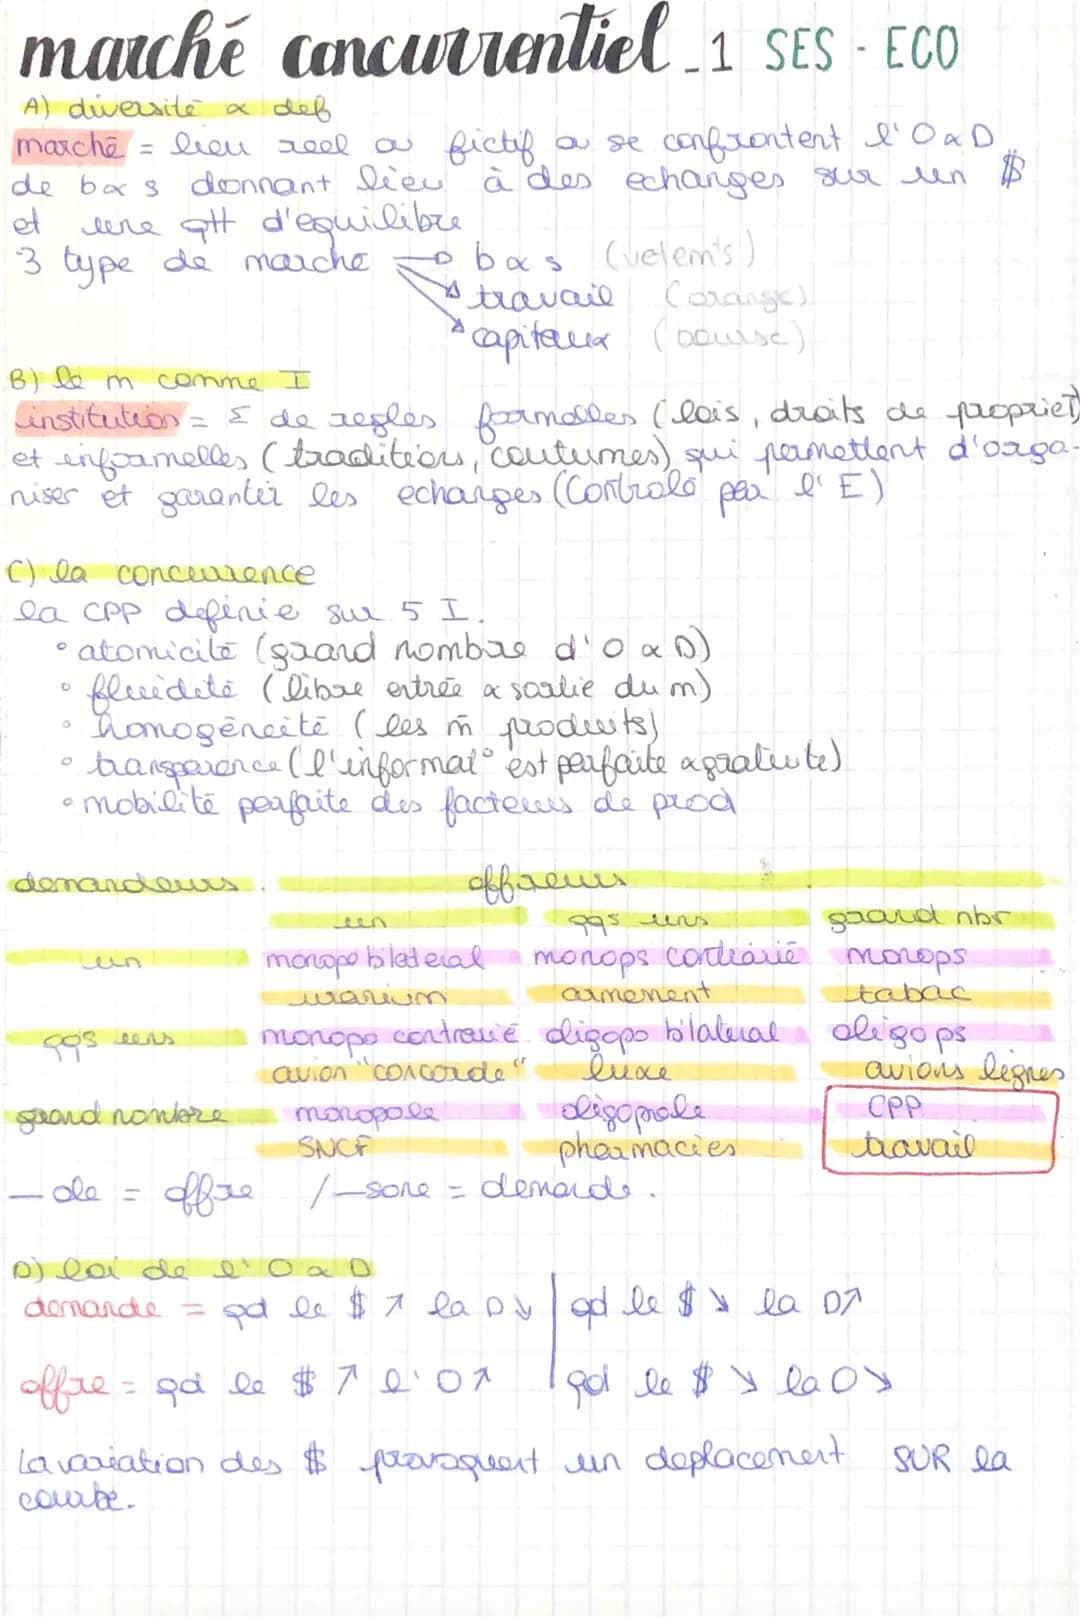 marché concurrentiel_1 SES - ECO
A) diversité & def
marché = lieu reel ou fictif ou se confrontent l'O & D
de b & s donnant lieu à des echanges sur un $
et une qtt d'equilibre
3 type de marche → b & s (vetem's)
travail (orange)
capitaux (bourse)
B) le m comme I
institution = Σ de regles formelles (lois, droits de propriet)
et informelles (traditions, coutumes) qui permettent d'orga-
niser et garantir les echanges (Controlé par l'E)
C) la concurrence
la CPP definie sur 5 I.
• atomicité (grand nombre d'O & D)
• fluidité (libre entrée & sortie du m)
• homogénéité (les m̂ produits)
• transparence (l'informat° est parfaite & gratuite)
• mobilité parfaite des facteurs de prod
demandeurs offreurs
un qqs uns grand nbr
un monopo bilateral monops contrarié monops
uranium armement tabac
qqs uns monopo contrarié oligopo bilateral oligops
avion "concorde" luxe avions lignes
grand nombre monopole oligopole CPP
SNCF pharmacies travail
— ole = offre / —sone = demande.
D) loi de l'O & D
demande = qd le $ ↗ la D ↘ | qd le $ ↘ la D ↗
offre = qd le $ ↗ l'O ↗ | qd le $ ↘ la O ↘
La variation des $ provoquent un deplacement SUR la
courbe.